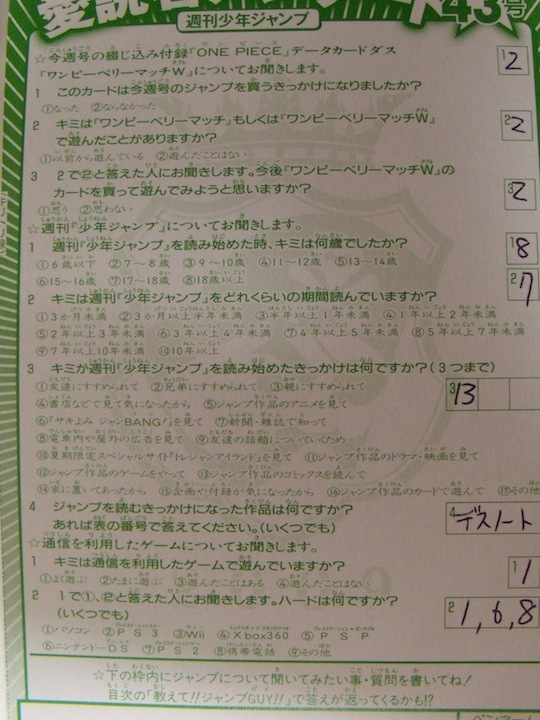 週刊少年ジャンプ
43号
☆今週号の綴じ込み付録『ONE PIECE』データカードダス
『ワンピーベリーマッチW』についてお聞きします。
1 2
1 このカードは今週号のジャンプを買うきっかけになりましたか?
①なった ②ならなかった
2 キミは『ワンピーベリーマッチ』もしくは『ワンピーベリーマッチW』
で遊んだことがありますか?
2 2
①以前から遊んでいる ②遊んだことはない
3 2で②と答えた人にお聞きします。今後『ワンピーベリーマッチW』の
カードを買って遊んでみようと思いますか?
3 2
①思う ②思わない
☆週刊『少年ジャンプ』についてお聞きします。
1 週刊『少年ジャンプ』を読み始めた時、キミは何歳でしたか?
1 8
①6歳以下 ②7~8歳 ③9~10歳 ④11~12歳 ⑤13~14歳
⑥15~16歳 ⑦17~18歳 ⑧18歳以上
2 7
2 キミは週刊『少年ジャンプ』をどれくらいの期間読んでいますか?
①3か月未満 ②3か月以上半年未満 ③半年以上1年未満 ④1年以上2年未満
⑤2年以上3年未満 ⑥3年以上4年未満 ⑦4年以上5年未満 ⑧5年以上7年未満
⑨7年以上10年未満 ⑩10年以上
3 キミが週刊『少年ジャンプ』を読み始めたきっかけは何ですか?(3つまで)
3 13
①友達にすすめられて ②兄弟にすすめられて ③親にすすめられて
④書店などで見て気になったから ⑤ジャンプ作品のアニメを見て
⑥『サキよみ ジャンBANG!』を見て ⑦新聞・雑誌で知って
⑧電車内や屋外の広告を見て ⑨友達の話題についていくため
⑩夏期限定スペシャルサイト『トレジャンアイランド』を見て ⑪ジャンプ作品のドラマ・映画を見て
⑫ジャンプ作品のゲームをやって ⑬ジャンプ作品のコミックスを読んで
⑭家に置いてあったから ⑮企画や付録が気になったから ⑯ジャンプ作品のカードで遊んで ⑰その他
4 ジャンプを読むきっかけになった作品は何ですか?
あれば表の番号で答えてください。(いくつでも)
4 デスノート
☆通信を利用したゲームについてお聞きします。
1 キミは通信を利用したゲームで遊んでいますか?
1 1
①よく遊ぶ ②たまに遊ぶ ③遊んだことはある ④遊んだことはない
2 1で①、②と答えた人にお聞きします。ハードは何ですか?
(いくつでも)
2 1,6,8
①パソコン ②PS3 ③Wii ④Xbox360 ⑤PSP
⑥ニンテンドーDS ⑦PS2 ⑧携帯電話 ⑨その他
☆下の枠内にジャンプについて聞いてみたい事・質問を書いてね!
目次の「教えて!!ジャンプGUY!!」で答えが返ってくるかも!?